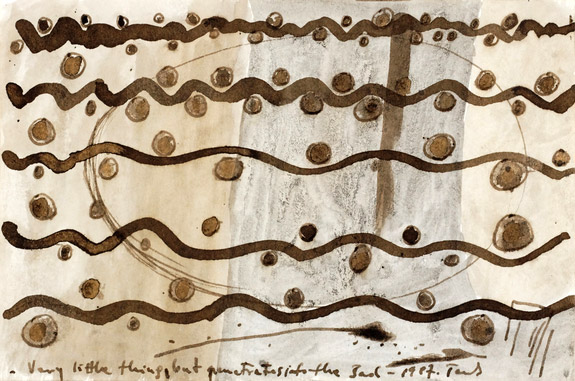 . Very little things, but penetrates into the Sad - 1987.